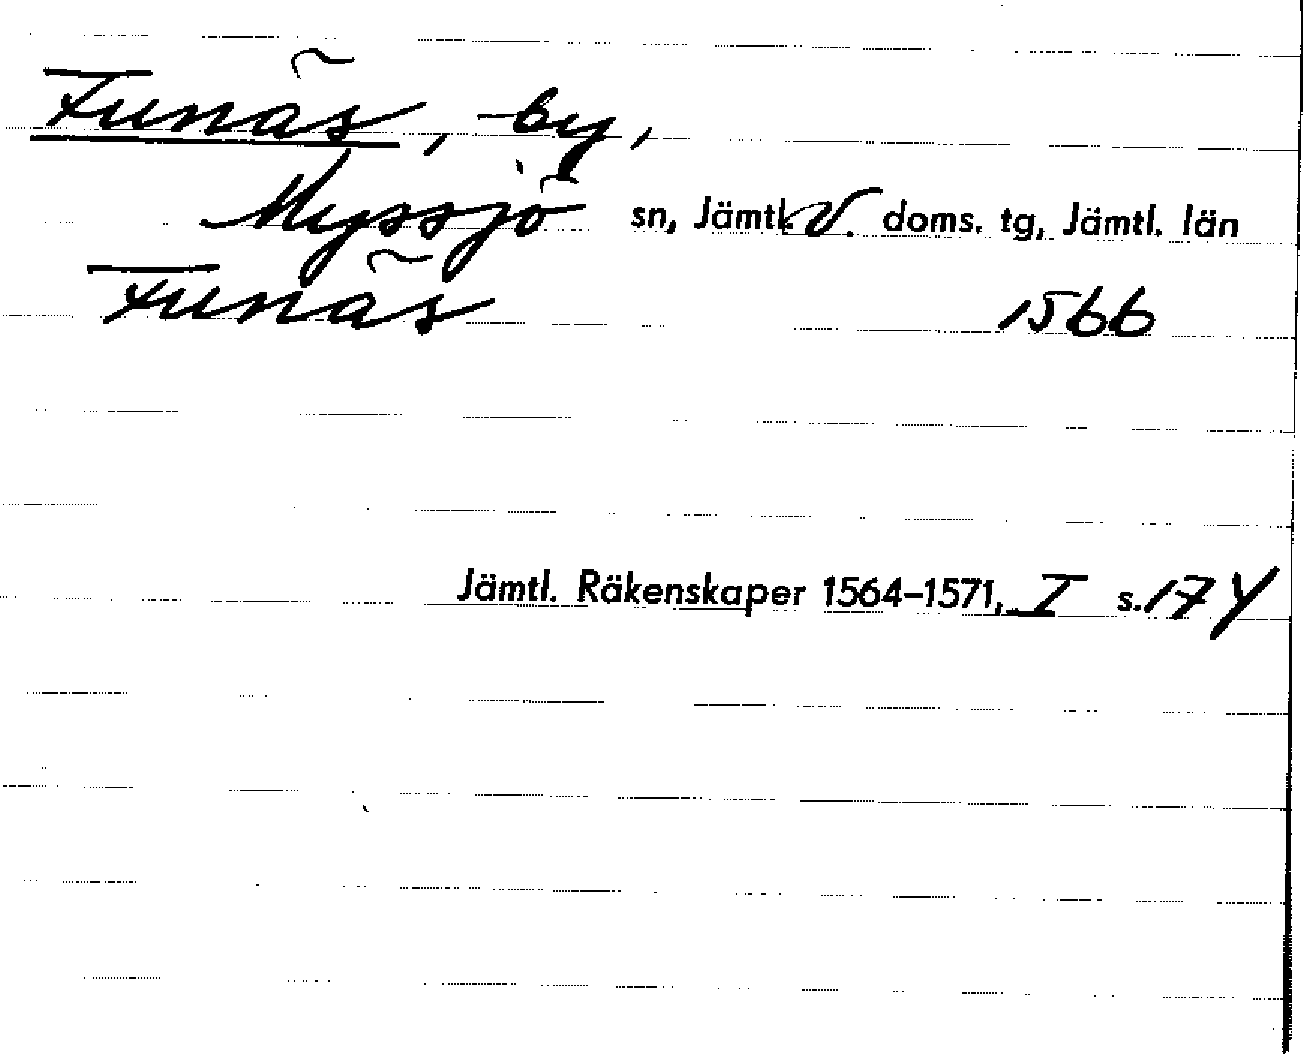 Funäs, by,
Myssjö sn, Jämtl. V. doms. tg, Jämtl. län
Funäs 1566
Jämtl. Räkenskaper 1564–1571, I s. 174